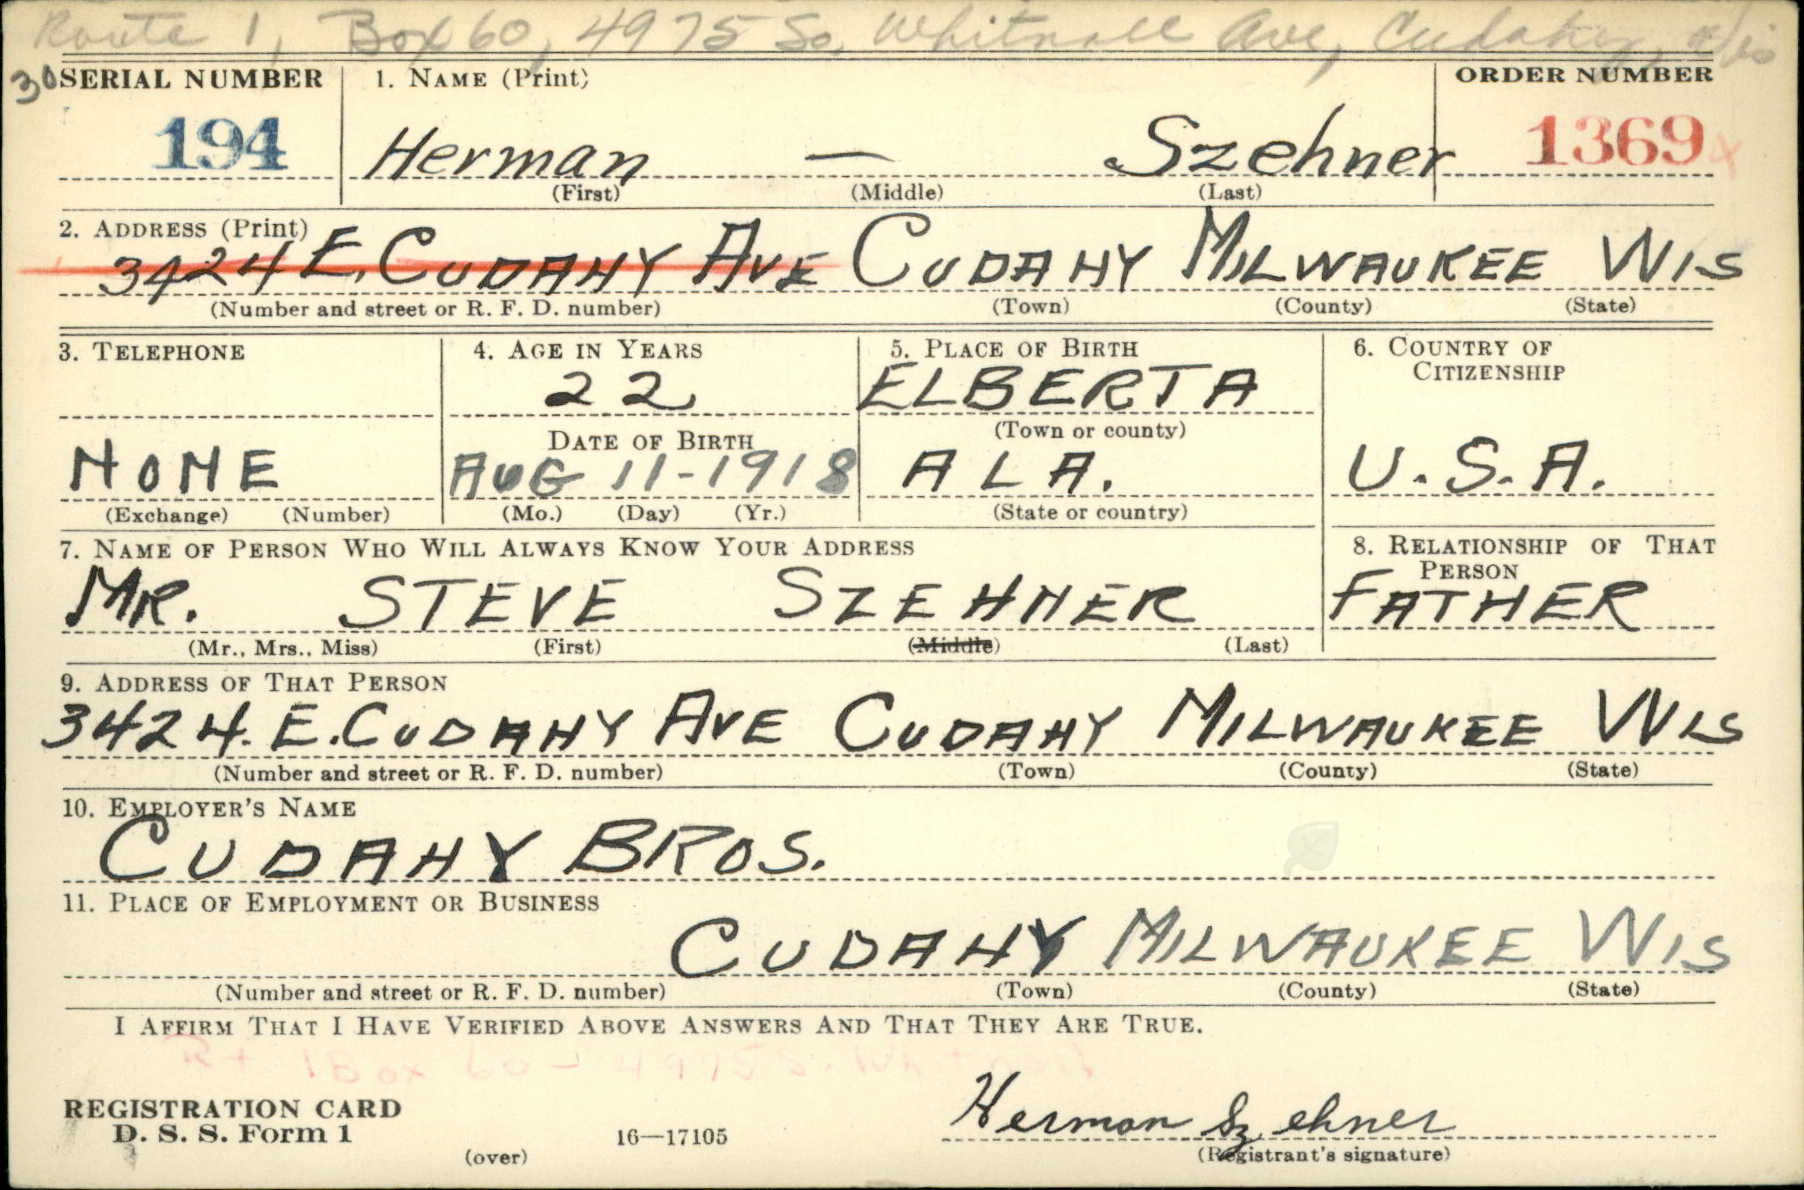 Route 1, Box 60, 4975 So. Whitnall Ave, Cudahy, Wis
30
SERIAL NUMBER 1. NAME (Print) ORDER NUMBER
194 Herman — Szehner 1369
(First) (Middle) (Last)
2. ADDRESS (Print)
3424 E. CUDAHY AVE CUDAHY MILWAUKEE WIS
(Number and street or R. F. D. number) (Town) (County) (State)
3. TELEPHONE 4. AGE IN YEARS 5. PLACE OF BIRTH 6. COUNTRY OF CITIZENSHIP
22 ELBERTA
DATE OF BIRTH (Town or county)
NONE AUG 11-1918 ALA. U.S.A.
(Exchange) (Number) (Mo.) (Day) (Yr.) (State or country)
7. NAME OF PERSON WHO WILL ALWAYS KNOW YOUR ADDRESS 8. RELATIONSHIP OF THAT PERSON
MR. STEVE SZEHNER FATHER
(Mr., Mrs., Miss) (First) (Middle) (Last)
9. ADDRESS OF THAT PERSON
3424. E. CUDAHY AVE CUDAHY MILWAUKEE WIS
(Number and street or R. F. D. number) (Town) (County) (State)
10. EMPLOYER'S NAME
CUDAHY BROS.
11. PLACE OF EMPLOYMENT OR BUSINESS
CUDAHY MILWAUKEE WIS
(Number and street or R. F. D. number) (Town) (County) (State)
I AFFIRM THAT I HAVE VERIFIED ABOVE ANSWERS AND THAT THEY ARE TRUE.
Rt 1 Box 60 - 4975 S.
REGISTRATION CARD
D. S. S. Form 1 16—17105 Herman Szehner
(over) (Registrant's signature)